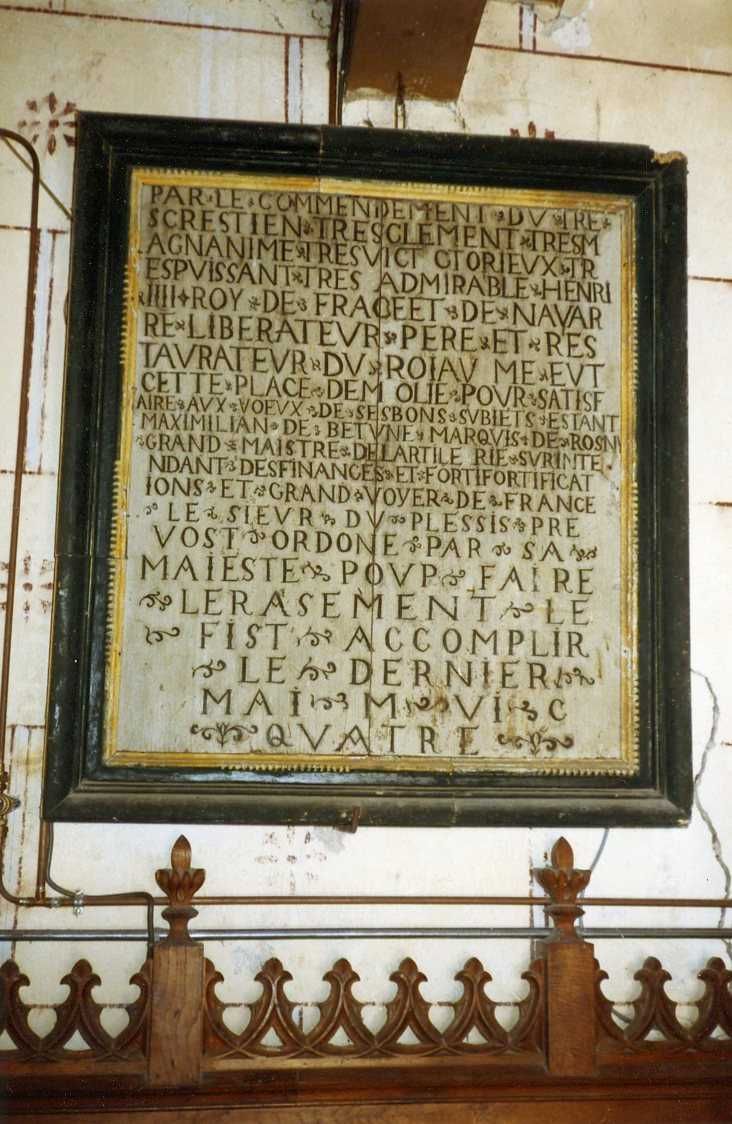 PAR LE COMMENDEMENT DV TRE
SCRESTIEN TRESCLEMENT TRESM
AGNANIME TRESVICTORIEVX TR
ESPVISSANT TRES ADMIRABLE HENRI
IIII ROY DE FRACEET DE NAVAR
RE LIBERATEVR PERE ET RES
TAVRATEVR DV ROIAVME EVT
CETTE PLACE DEMOLIE POVR SATISF
AIRE AVX VOEVX DE SESBONS SVBIETS ESTANT
MAXIMILIAN DE BETVNE MARQVIS DE ROSNI
GRAND MAISTRE DELARTILERIE SVRINTE
NDANT DESFINANCES ET FORTIFORTIFICAT
IONS ET GRAND VOYER DE FRANCE
LE SIEVR DV PLESSIS PRE
VOST ORDONE PAR SA
MAIESTE POVP FAIRE
LERASEMENT LE
FIST ACCOMPLIR
LE DERNIER
MAI M VI C
QVATRE